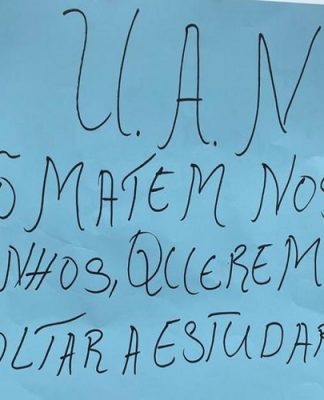 U.A.N
ÃO MATEM NOS
NHOS, QUEREM
OLTAR A ESTUDAR